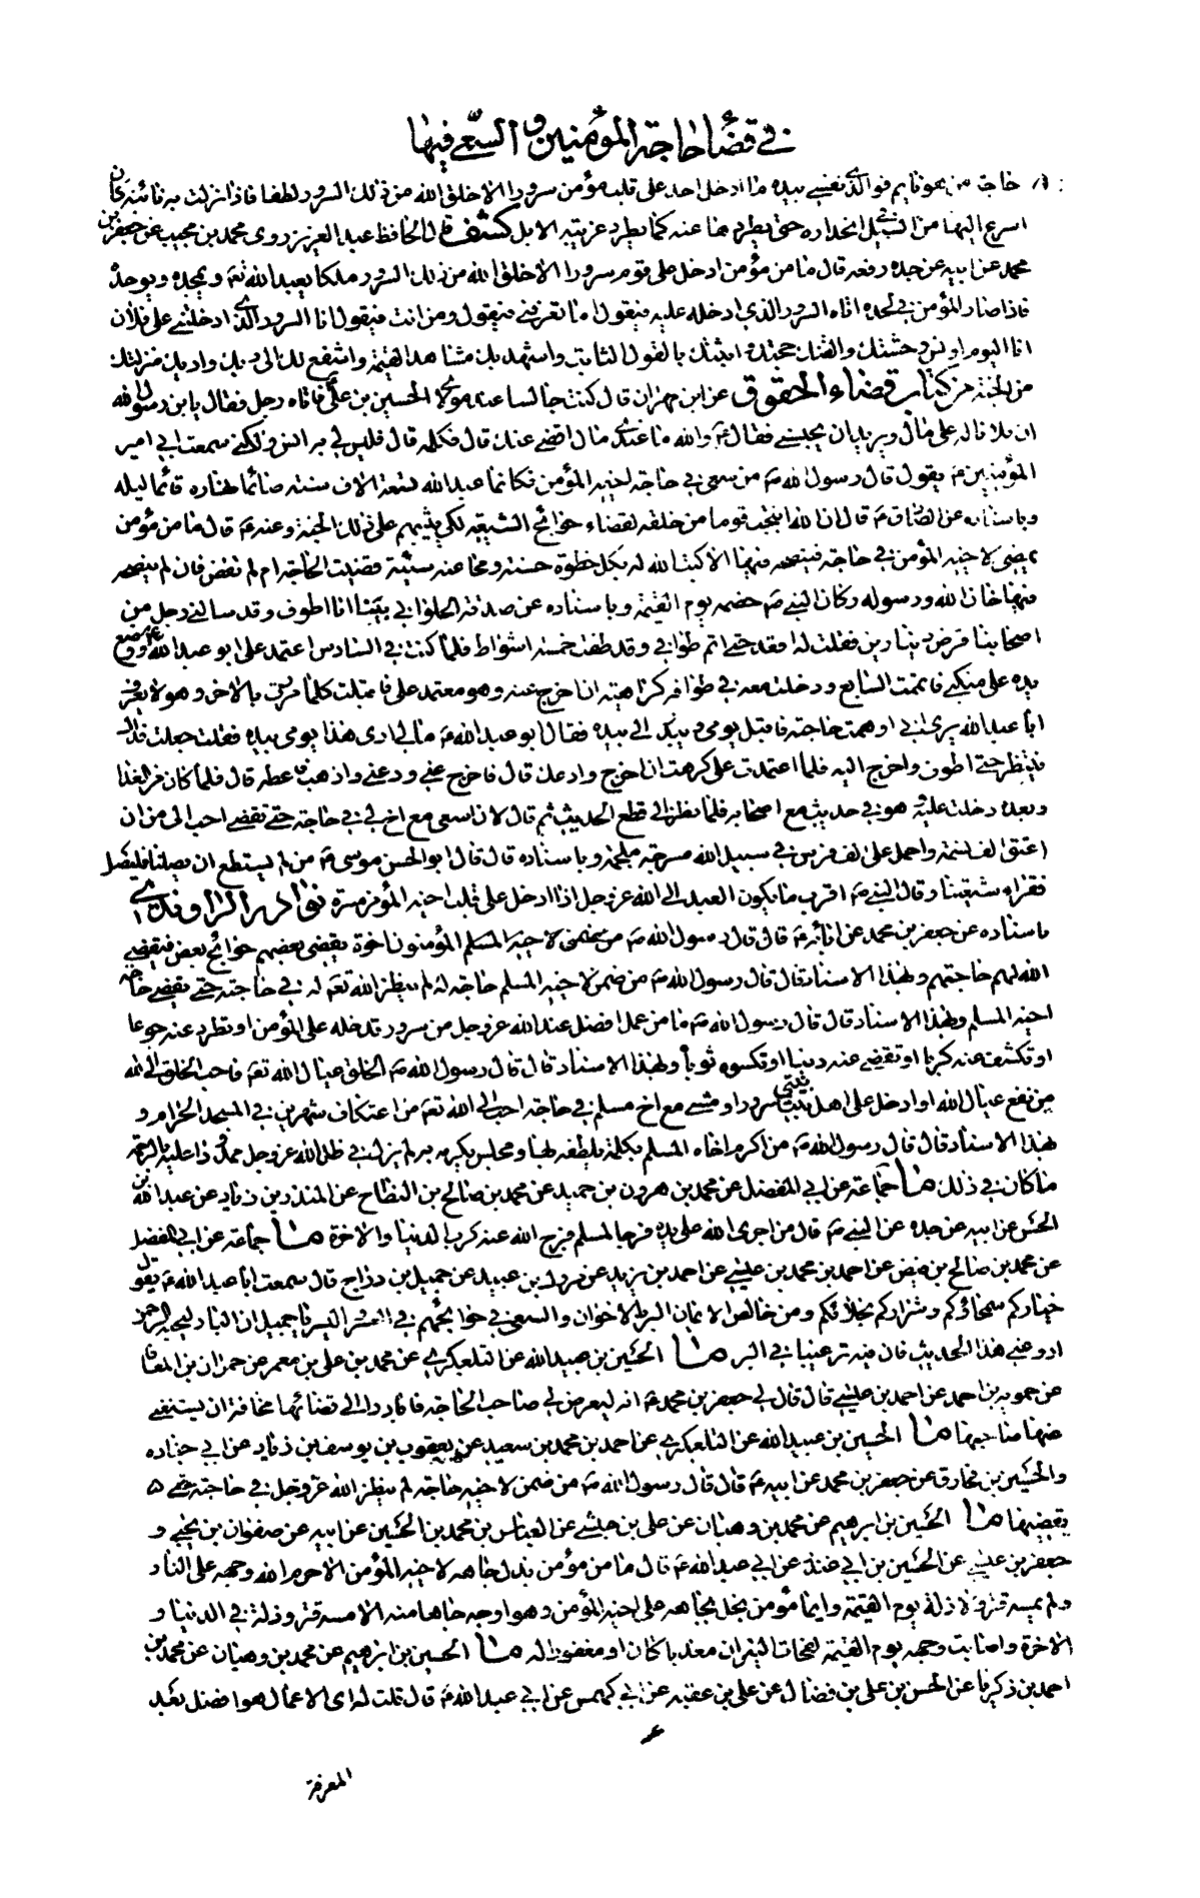 في قضاء حاجة المؤمنين و السعي فيها
حاجة من هو فوالذي نفسي بيده ما ادخل احد على قلب مؤمن سرورا الا خلق الله من ذلك السرور لطفا فاذا نزلت به نائبة كان
اسرع اليها من السيل في انحداره حتى يطردها عنه كما يطرد غريبة الابل كشف قال الحافظ عبد العزيز روى محمد بن مجيب عن جعفر بن
محمد عن ابيه عن جده رفعه قال ما من مؤمن ادخل على قوم سرورا الا خلق الله من ذلك السرور ملكا يعبد الله تعالى و يمجده و يوحده
فاذا صار المؤمن في لحده اتاه السرور الذي ادخله عليه فيقول اما تعرفني فيقول و من انت فيقول انا السرور الذي ادخلتني على فلان
انا اليوم اونس وحشتك و القنك حجتك و اثبتك بالقول الثابت و اشهد بك مشاهد القيمة و اشفع لك الى ربك و اريك منزلتك
من الجنة من كتاب قضاء الحقوق عن ابن مهران قال كنت جالسا عند مولاي الحسين بن علي ع فاتاه رجل فقال يا بن رسول الله
ان فلانا له على مال و يريد ان يحبسني فقال ع والله ما عندي مال اقضي عنك قال فكلمه قال فليس لي به انس و لكني سمعت ابي امير
المؤمنين ع يقول قال رسول الله ص من سعى في حاجة اخيه المؤمن فكانما عبد الله تسعة الاف سنة صائما نهاره قائما ليله
و باسناده عن الصادق ع قال ان الله انتجب قوما من خلقه لقضاء حوائج الشيعة لكي يثيبهم على ذلك الجنة و عنه ع قال ما من مؤمن
يمضي لاخيه المؤمن في حاجة فينصحه فيها الا كتب الله له بكل خطوة حسنة و محا عنه سيئة قضيت الحاجة ام لم تقض فان لم ينصحه
فيها خان الله و رسوله و كان النبي ص خصمه يوم القيمة و باسناده عن صدقة الحلواني بينا انا اطوف و قد سالني رجل من
اصحابنا قرض دينارين فقلت له اقعد حتى اتم طوافي و قد طفت خمسة اشواط فلما كنت في السادس اعتمد على ابو عبد الله ع و وضع
يده على منكبي فاتممت السابع و دخلت معه في طوافه كراهية ان اخرج عنه و هو معتمد علي فاقبلت كلما مررت بالاخر و هو لا يعرف
ابا عبد الله يرى اني اوهمت حاجته فاقبل يومي بيده الي فقال ابو عبد الله ع مالي ارى هذا يومي بيده فقلت جعلت فداك
ينتظر حتى اطوف و اخرج اليه فلما اعتمدت علي كرهت ان اخرج و ادعك قال فاخرج عني و دعني و اذهب فاعطه قال فلما كان من الغد
و بعده دخلت عليه و هو في حديث مع اصحابه فلما نظر الي قطع الحديث ثم قال لان اسعى مع اخ لي في حاجة حتى تقضى احب الي من ان
اعتق الف نسمة و احمل على الف فرس في سبيل الله مسرجة ملجمة و باسناده قال قال ابو الحسن موسى ع من لم يستطع ان يصلنا فليصل
فقراء شيعتنا و قال النبي ص اقرب ما يكون العبد الى الله عز و جل اذا ادخل على قلب اخيه المؤمن مسرة نوادر الراوندي
باسناده عن جعفر بن محمد عن ابائه ع قال قال رسول الله ص من يمضي لاخيه المسلم المؤمنون اخوة يقضي بعضهم حوائج بعض فيقضي
الله لهم حاجتهم و بهذا الاسناد قال قال رسول الله ص من ضمن لاخيه المسلم حاجة له لم ينظر الله تعالى له في حاجته حتى يقضي حاجة
اخيه المسلم و بهذا الاسناد قال قال رسول الله ص ما من عمل افضل عند الله عز و جل من سرور تدخله على المؤمن او تطرد عنه جوعا
او تكشف عنه كربا او تقضي عنه دينا او تكسوه ثوبا و بهذا الاسناد قال قال رسول الله ص الخلق عيال الله تعالى فاحب الخلق الى الله
من نفع عيال الله او ادخل على اهل بيت سرورا و مشى مع اخ مسلم في حاجة احب الى الله تعالى من اعتكاف شهرين في المسجد الحرام و
بهذا الاسناد قال قال رسول الله ص من اكرم اخاه المسلم بكلمة يلطفه بها و مجلس يكرمه به لم يزل في ظل الله عز و جل ممدودا عليه بالرحمة
ما كان في ذلك ما جماعة عن ابي المفضل عن محمد بن هرون بن حميد عن محمد بن صالح بن النطاح عن المنذر بن زياد عن عبد الله بن
الحسن عن ابيه عن جده عن النبي ص قال من اجرى الله على يده فرجا لمسلم فرج الله عنه كرب الدنيا و الاخرة ما جماعة عن ابي المفضل
عن محمد بن صالح بن فيض عن احمد بن محمد بن عيسى عن احمد بن يزيد عن مروك بن عبيد عن جميل بن دراج قال سمعت ابا عبد الله ع يقول
خياركم سمحاؤكم و شراركم بخلائكم و من خالص الايمان البر بالاخوان و السعي في حوائجهم في العسر و اليسر يا جميل ان البار ليحبه الرحمن
ارو عني هذا الحديث فان فيه ترغيبا في البر ما الحسين بن عبيد الله عن التلعكبري عن محمد بن علي بن معمر عن حمران بن المعافا
عن حمويه بن احمد عن احمد بن عيسى قال قال لي جعفر بن محمد ع انه ليعرض لي صاحب الحاجة فابادر الى قضائها مخافة ان يستغني
عنها صاحبها ما الحسين بن عبيد الله عن التلعكبري عن احمد بن محمد بن سعيد عن يعقوب بن يوسف بن زياد عن ابي جناده
و الحسين بن مخارق عن جعفر بن محمد عن ابيه ع قال قال رسول الله ص من ضمن لاخيه حاجة لم ينظر الله عز و جل في حاجته حتى
يقضيها ما الحسين بن ابرهيم عن محمد بن وهبان عن علي بن حبشي عن العباس بن محمد بن الحسين عن ابيه عن صفوان بن يحيى و
جعفر بن عيسى عن الحسين بن ابي غندر عن ابي عبد الله ع قال ما من مؤمن بذل جاهه لاخيه المؤمن الا حرم الله وجهه على النار
و لم يمسه قتر و لا ذلة يوم القيمة و ايما مؤمن بخل بجاهه على اخيه المؤمن و هو اوجه جاها منه الا مسه قتر و ذلة في الدنيا و
الاخرة و اصابت وجهه يوم القيمة لفحات النيران معذبا كان او مغفورا له ما الحسين بن ابرهيم عن محمد بن وهبان عن محمد بن
احمد بن زكريا عن الحسن بن علي بن فضال عن علي بن عقبه عن ابي كهمس عن ابي عبد الله ع قال قلت له اي الاعمال هو افضل بعد
المعرفة